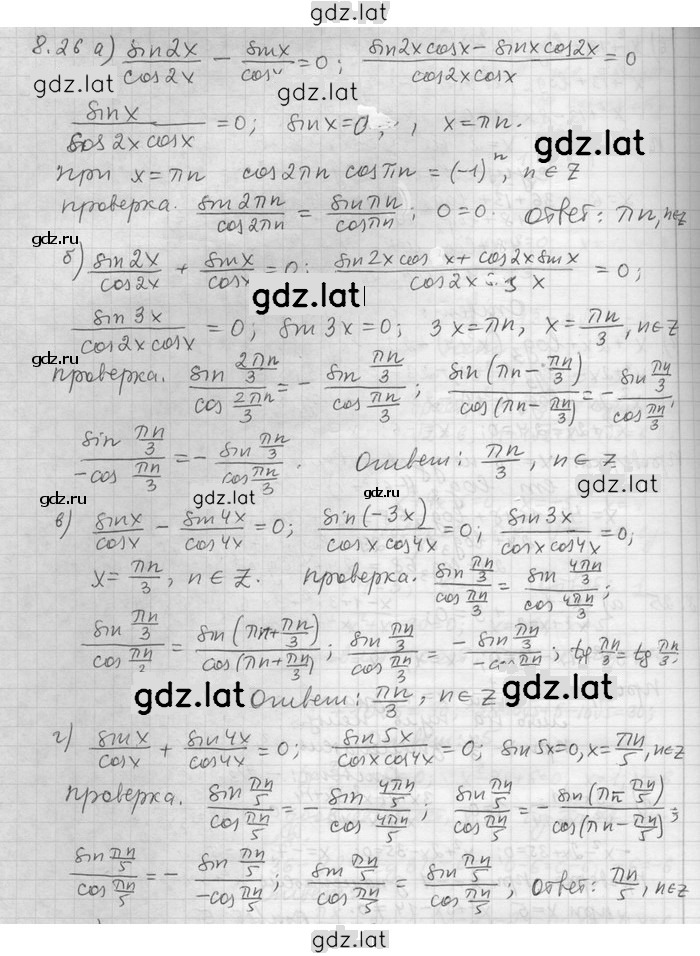 gdz.lat
8.26 а) sin2x/cos2x − sinx/cosx = 0; (sin2x cosx − sinx cos2x)/(cos2x cosx) = 0
gdz.lat gdz.lat
sinx/(cos2x cosx) = 0; sinx = 0; , x = πn.
gdz.lat
при x = πn cos2πn cosπn = (−1)ⁿ, n ∈ Z
проверка. sin2πn/cos2πn = sinπn/cosπn; 0 = 0. ответ: πn, n∈Z
gdz.ru gdz.ru
б) sin2x/cos2x + sinx/cosx = 0; (sin2x cos x + cos2x sinx)/(cos2x x) = 0;
gdz.lat
sin3x/(cos2x cosx) = 0; sin3x = 0; 3x = πn, x = πn/3, n∈Z
gdz.lat
проверка. sin 2πn/3 / cos 2πn/3 = − sin πn/3 / cos πn/3; sin(πn − πn/3)/cos(πn − πn/3) = − sin πn/3 / cos πn/3;
sin πn/3 / −cos πn/3 = − sin πn/3 / cos πn/3. Ответ: πn/3, n ∈ Z
gdz.ru gdz.lat gdz.ru gdz.lat
в) sinx/cosx − sin4x/cos4x = 0; sin(−3x)/(cosx cos4x) = 0; sin3x/(cosx cos4x) = 0;
x = πn/3, n ∈ Z. проверка. sin πn/3 / cos πn/3 = sin 4πn/3 / cos 4πn/3;
sin πn/3 / cos πn/2 = sin(πn + πn/3)/cos(πn + πn/3); sin πn/3 / cos πn/3 = − sin πn/3 / −cos πn/3; tg πn/3 = tg πn/3;
gdz.lat Ответ: πn/3, n ∈ Z gdz.lat
г) sinx/cosx + sin4x/cos4x = 0; sin5x/(cosx cos4x) = 0; sin5x = 0, x = πn/5, n∈Z
проверка. sin πn/5 / cos πn/5 = − sin 4πn/5 / cos 4πn/5; sin πn/5 / cos πn/5 = − sin(πn − πn/5)/cos(πn − πn/5);
sin πn/5 / cos πn/5 = − sin πn/5 / −cos πn/5; sin πn/5 / cos πn/5 = sin πn/5 / cos πn/5; ответ: πn/5, n∈Z
gdz.lat